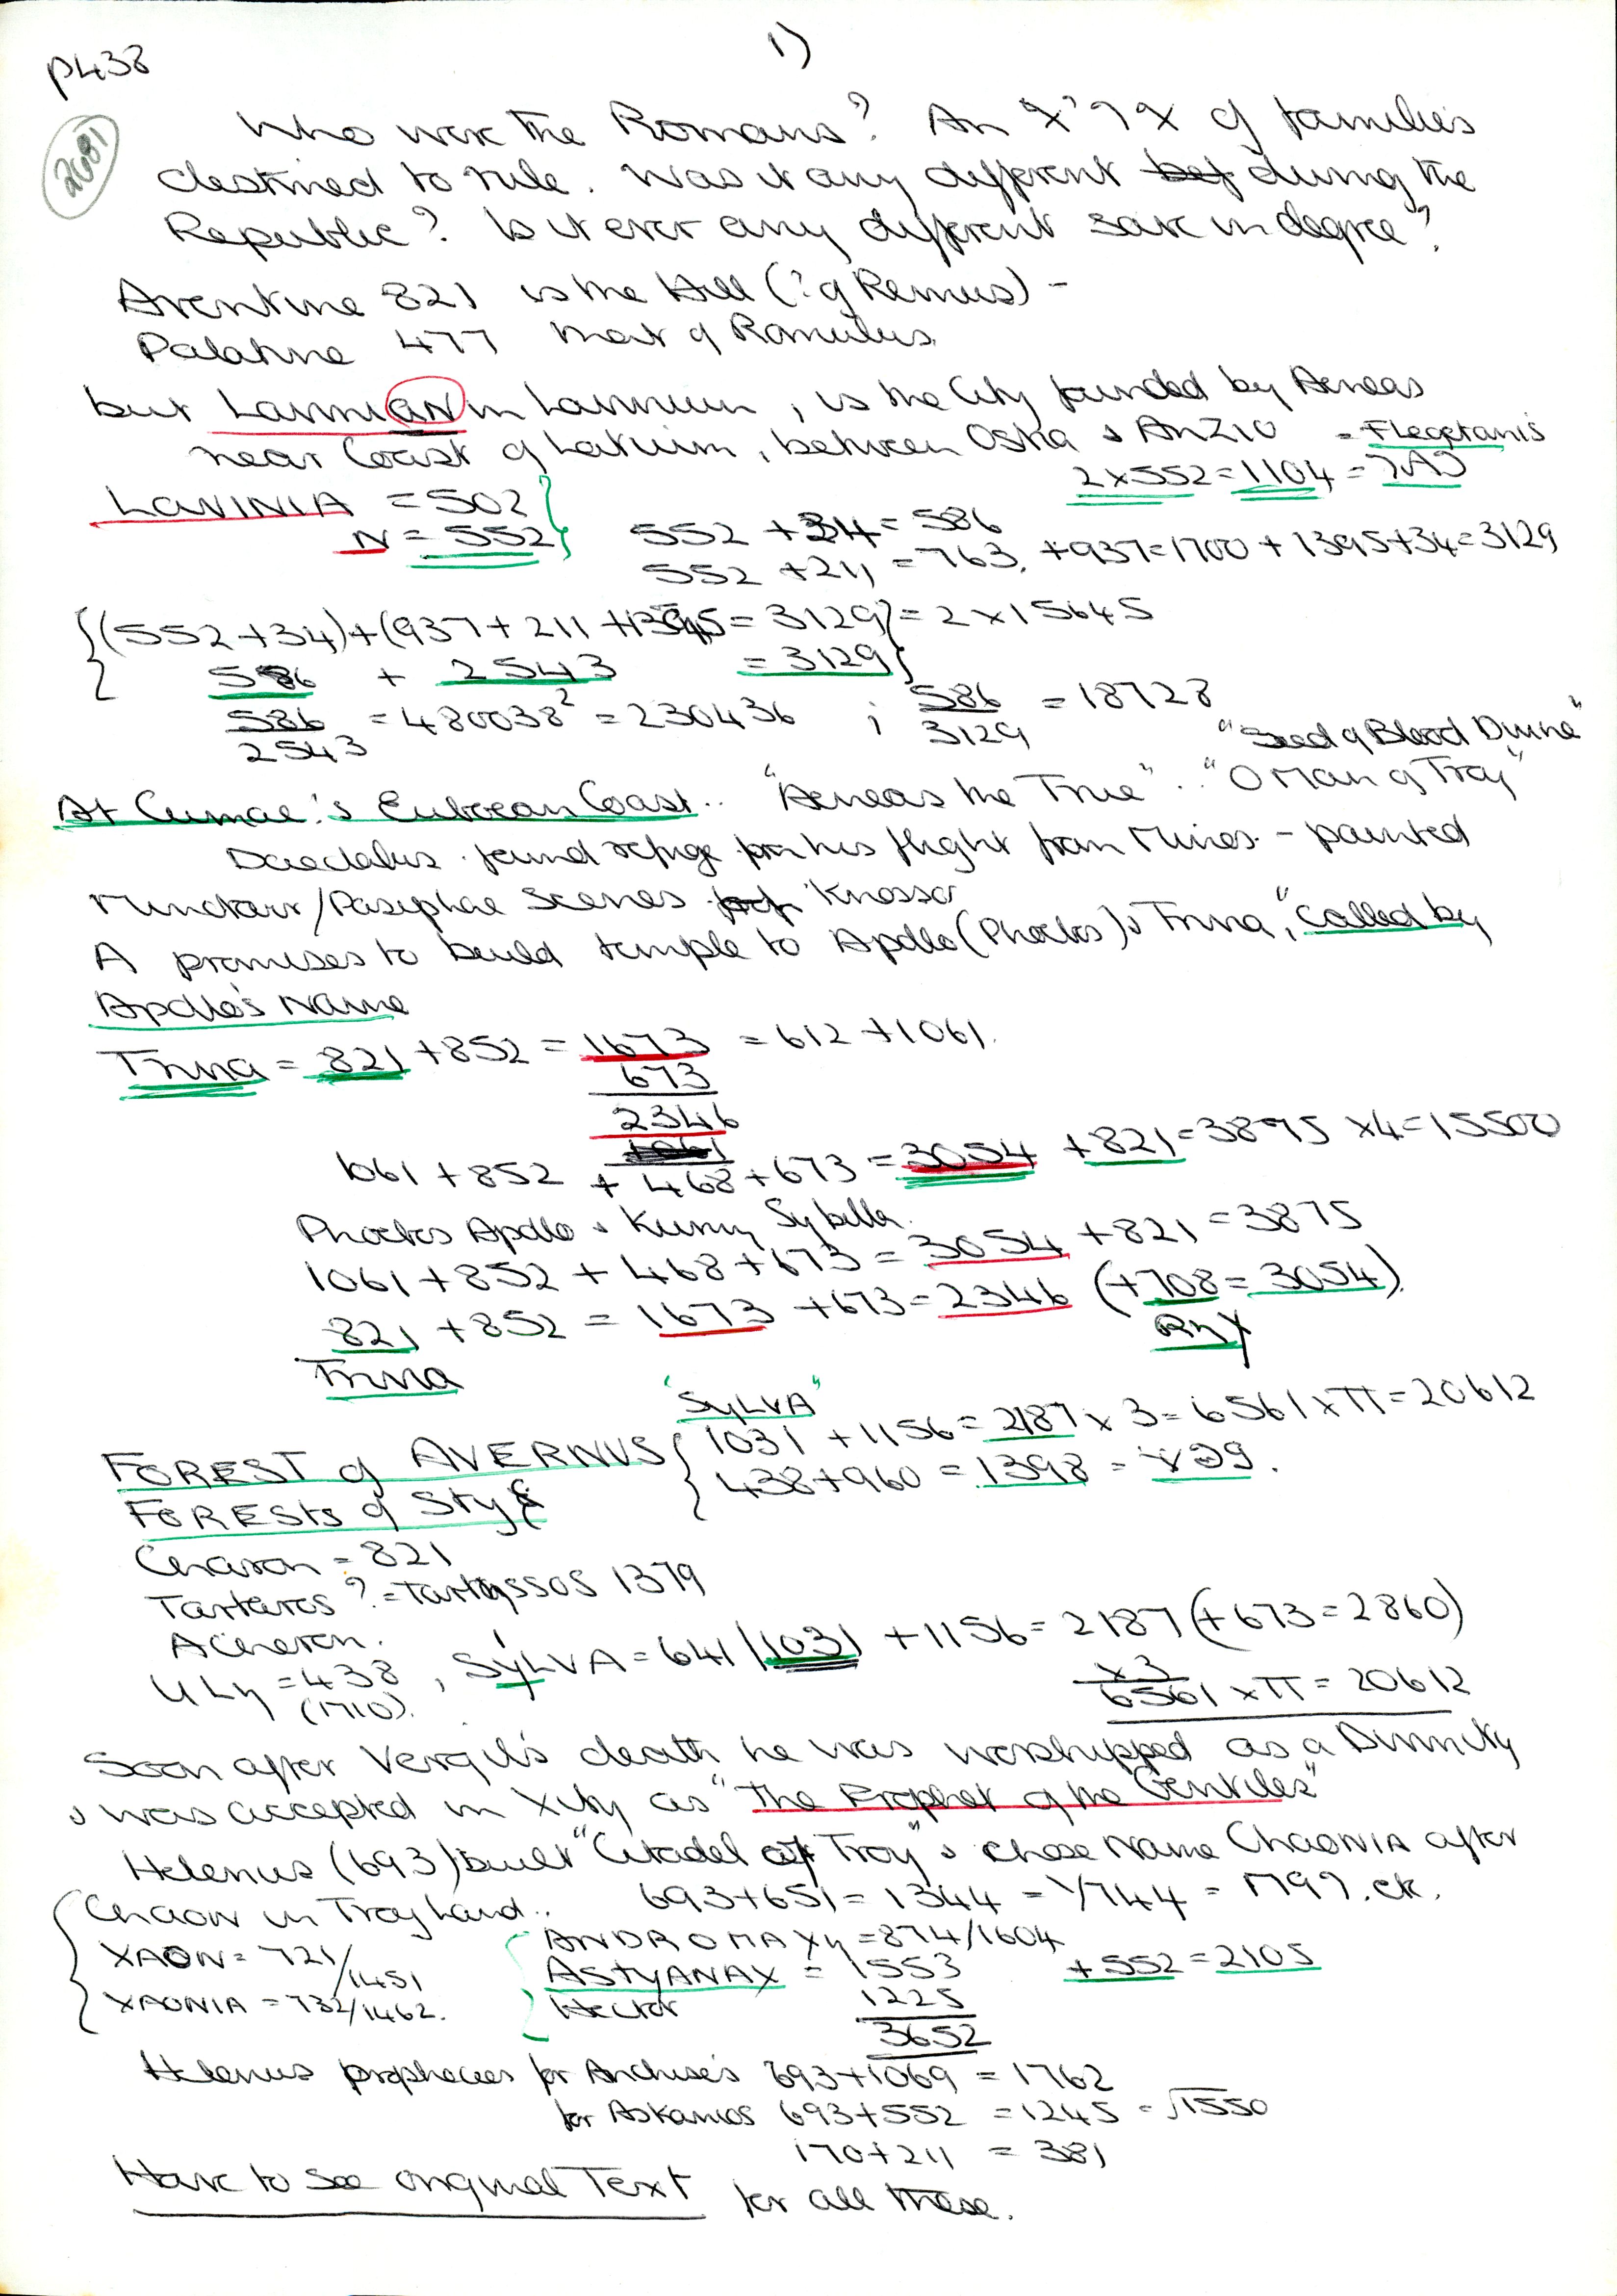 1)
p438
2681
Who were the Romans? An of families
destined to rule. Was it any different bef during the
Republic? Is it ever any different save in degree?
Aventine 821 is the Hill (? of Remus) -
Palatine 477 that of Romulus.
but LavinianN in Lavinium, is the City founded by Aeneas
near Coast of Latium, between Ostia & Anzio = FLegetanis
2x552 = 1104 =
LAVINIA = 502
N = 552
552 + 34 = 586
552 + 211 = 763. +937=1700 + 1395+34=3129
(552+34)+(937+211+1395 = 3129) = 2 x 15645
586 + 2543 = 3129
586/2543 = 480038² = 230436 ; 586/3129 = 18728
"Seed of Blood Divine"
At Cumae's Euboean Coast.. "Aeneas the True".. "O Man of Troy"
Daedalus found refuge from his flight from Minos. - painted
Minotaur/Pasiphae scenes Knossos
A promises to build temple to Apollo (Phoebus) & Trivia, "called by
Apollo's Name
Trivia = 821 + 852 = 1673 = 612 + 1061.
673
2346
1061 + 852 + 468 + 673 = 3054 + 821 = 3875 x4 = 15500
Phoebus Apollo & Kumy Sybilla.
1061 + 852 + 468 + 673 = 3054 + 821 = 3875
821 + 852 = 1673 + 673 = 2346 (+708 = 3054).
Trivia
"SYLVA"
FOREST of AVERNUS { 1031 + 1156 = 2187 x 3 = 6561 x π = 20612
FORESTs of Styx { 438 + 960 = 1398 =
Charon = 821
Tartaros ? = Tartyssos 1379
Acheron.
ULy = 438, SyLVA = 641/1031 + 1156 = 2187 (+673 = 2860)
(1710).
x3
6561 x π = 20612
Soon after Vergil's death he was worshipped as a Divinity
& was accepted in Xity as "The Prophet of the Gentiles"
Helenus (693) built "Citadel of Troy" & chose Name CHAONIA after
Chaon in Troy Land.. 693 + 651 = 1344 = 1/744 = etc.
XAON = 721/1451
XAONIA = 732/1462.
ANDROMAXy = 874/1604
ASTYANAX = 1553 + 552 = 2105
Hector 1225
3652
Helenus prophecies for Anchises 693+1069 = 1762
for Askanios 693+552 = 1245 = √1550
170+211 = 381
Have to see original Text for all these.